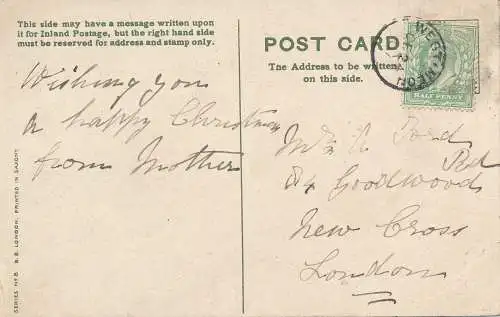 This side may have a message written upon
it for Inland Postage, but the right hand side
must be reserved for address and stamp only.
Wishing you
a happy Christmas
from Mother
SERIES No 8 B.B. LONDON, PRINTED IN SAXONY.
POST CARD
The Address to be written
on this side.
HALF PENNY
Ford
84 Goodwood Rd
New Cross
London